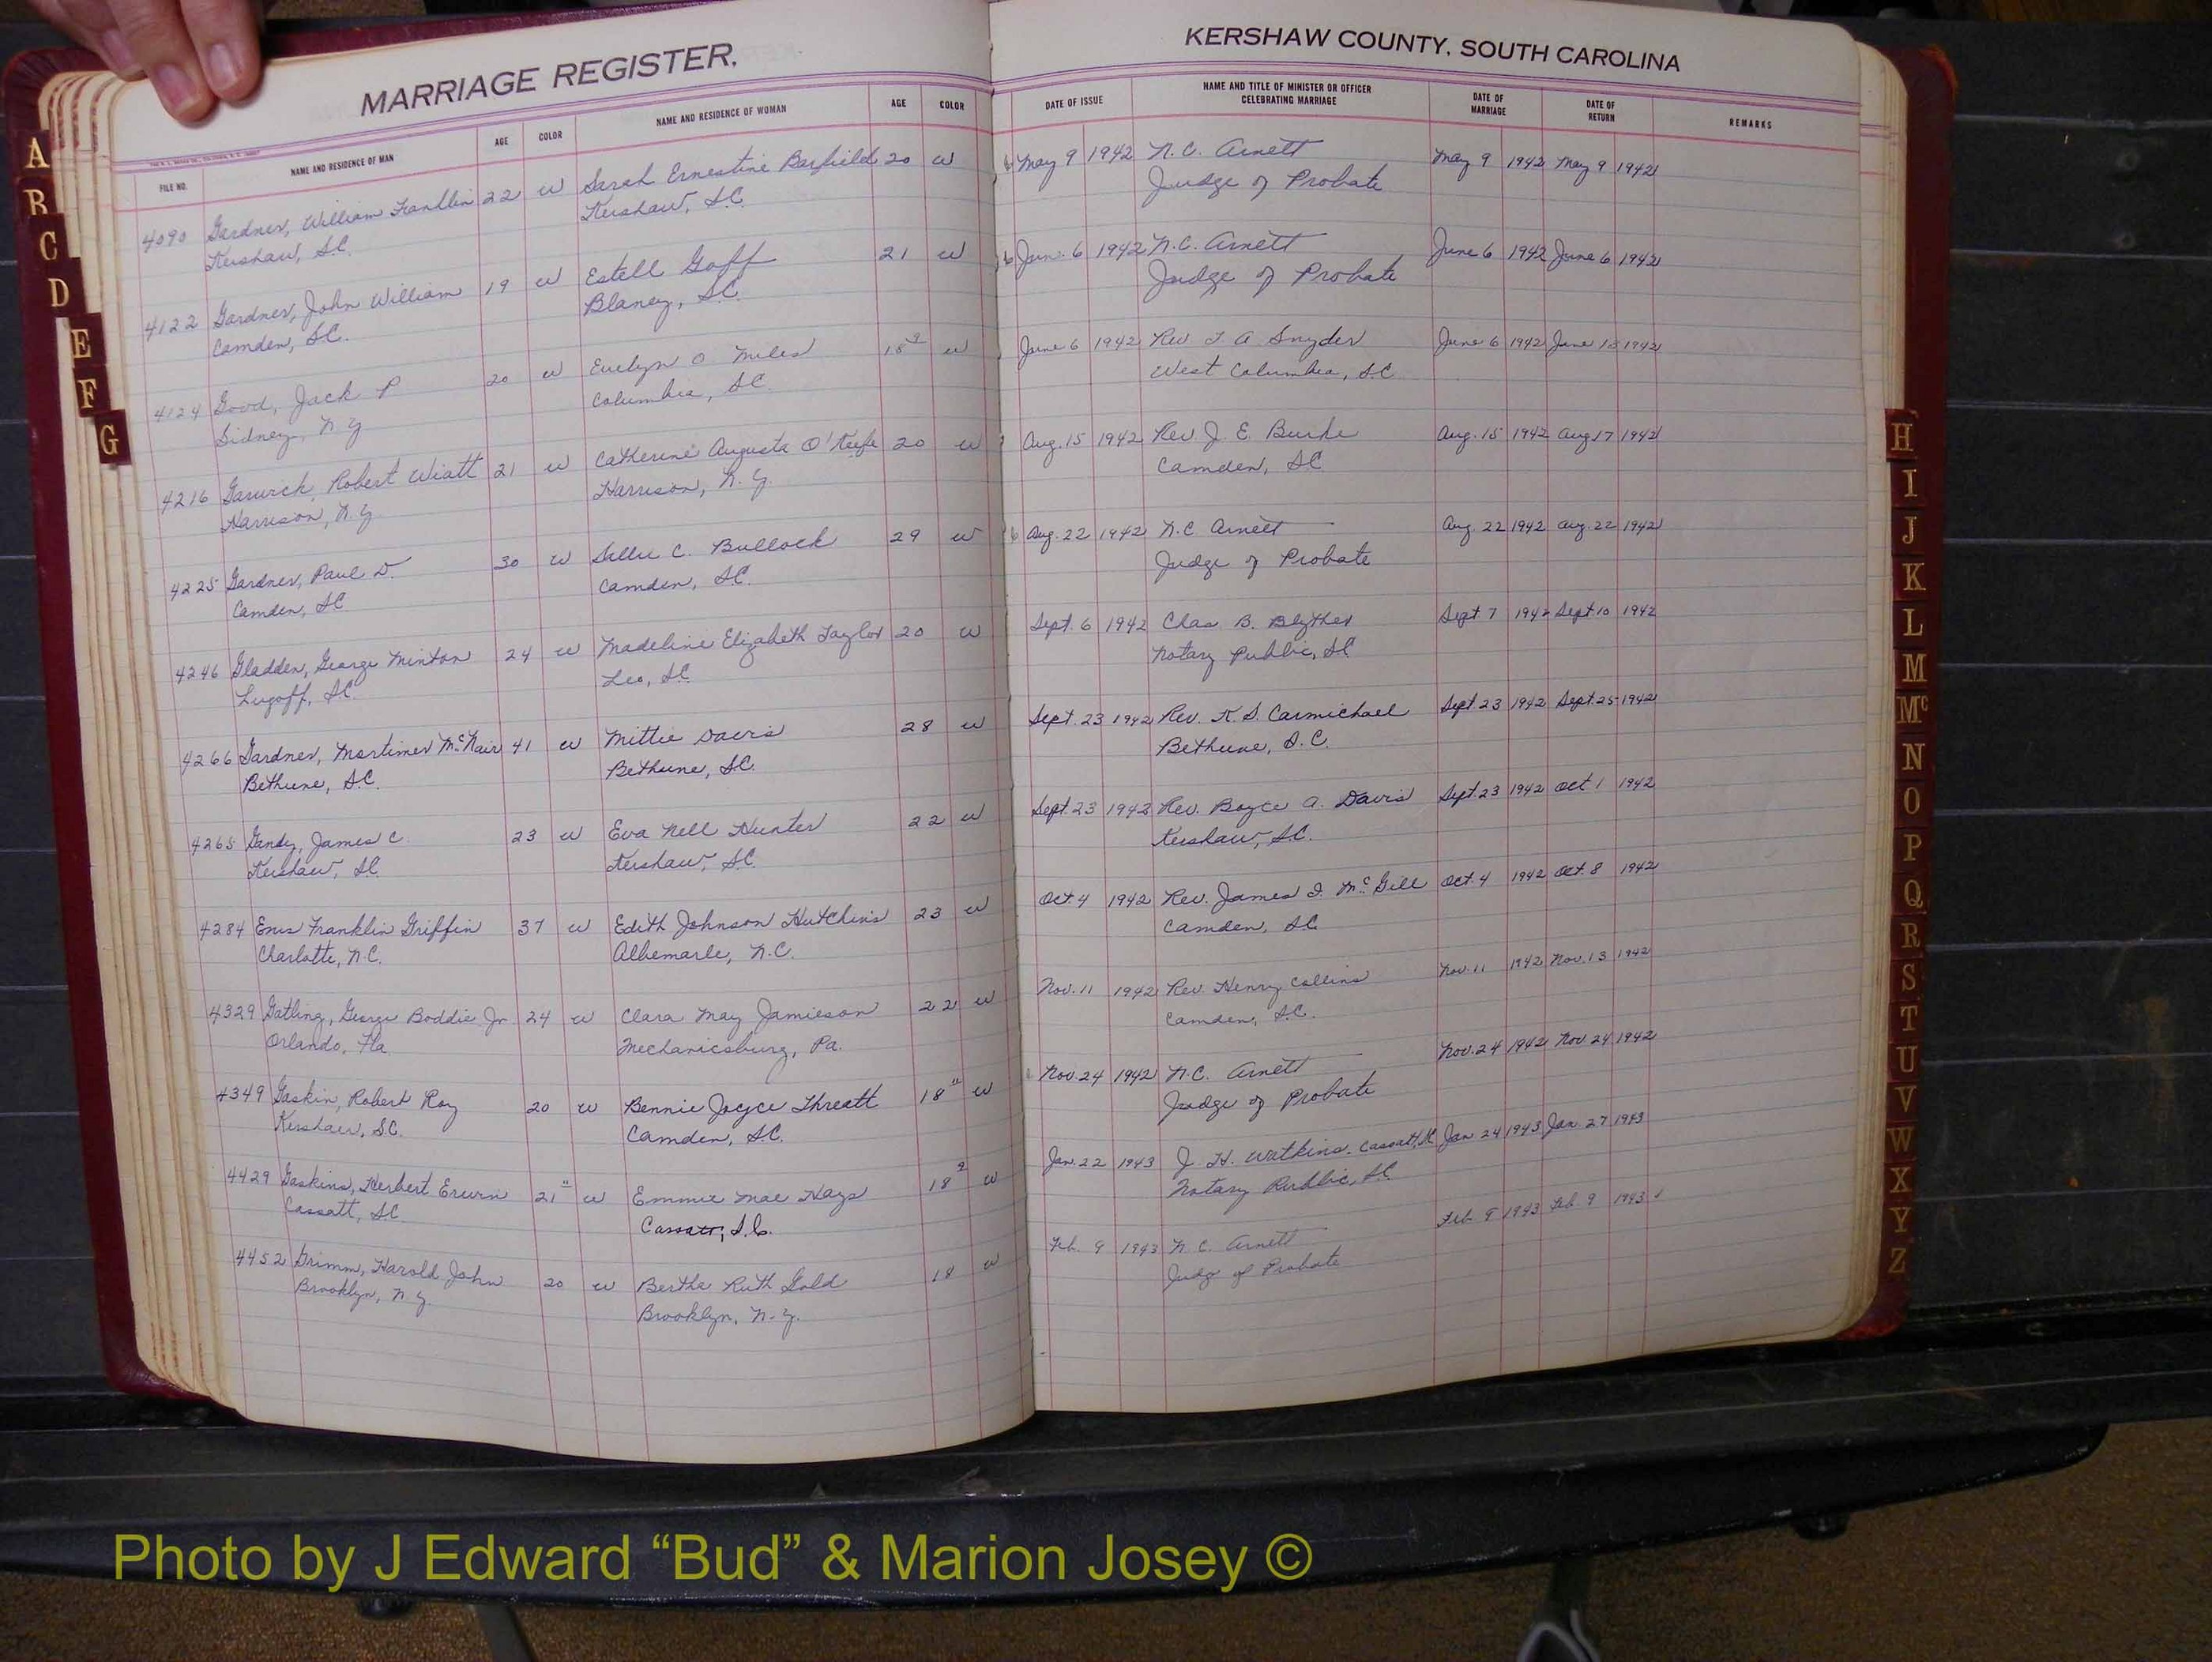 MARRIAGE REGISTER.
FILE NO. NAME AND RESIDENCE OF MAN AGE COLOR NAME AND RESIDENCE OF WOMAN AGE COLOR
4090 Gardner, William Franklin 22 W Sarah Ernestine Barfield 20 W
Kershaw, S.C. Kershaw, S.C.
4122 Gardner, John William 19 W Estell Goff 21 W
Camden, S.C. Blaney, S.C.
4124 Good, Jack P 20 W Evelyn O Miles W
Sidney, N.Y. Columbia, S.C.
4216 Robert Wiatt 21 W Catherine Augusta O'Keefe 20 W
Harrison, N.Y. Harrison, N.Y.
4225 Gardner, Paul D. 30 W Sellie C. Bullock 29 W
Camden, S.C. Camden, S.C.
4246 Gladden, George Minton 24 W Madeline Elizabeth Taylor 20 W
Lugoff, S.C. S.C.
4266 Gardner, Mortimer McNair 41 W Mittie Davis 28 W
Bethune, S.C. Bethune, S.C.
4265 Gandy, James C. 23 W Eva Nell Hunter 22 W
Kershaw, S.C. Kershaw, S.C.
4284 Franklin Griffin 37 W Edith Johnson Hutchins 23 W
Charlotte, N.C. Albemarle, N.C.
4329 Gatling, George Boddie Jr 24 W Clara May Jamieson 22 W
Orlando, Fla Mechanicsburg, Pa.
4349 Gaskin, Robert Roy 20 W Bennie Joyce Threatt 18 11 W
Kershaw, S.C. Camden, S.C.
4429 Gaskins, Herbert Erwin 21 11 W Emmie Mae Hays 18 2 W
Cassatt, S.C. Cassatt, S.C.
4452 Grimm, Harold John 20 W Bertha Ruth Gold 18 W
Brooklyn, N.Y. Brooklyn, N.Y.
KERSHAW COUNTY, SOUTH CAROLINA
DATE OF ISSUE NAME AND TITLE OF MINISTER OR OFFICER CELEBRATING MARRIAGE DATE OF MARRIAGE DATE OF RETURN REMARKS
May 9 1942 N.C. Arnett May 9 1942 May 9 1942
Judge of Probate
June 6 1942 N.C. Arnett June 6 1942 June 6 1942
Judge of Probate
June 6 1942 Rev. A Snyder June 6 1942 June 1942
West Columbia, S.C.
Aug. 15 1942 Rev J. E. Burke Aug. 15 1942 Aug 17 1942
Camden, S.C.
Aug. 22 1942 N.C. Arnett Aug. 22 1942 Aug. 22 1942
Judge of Probate
Sept. 6 1942 Chas B. Blyther Sept 7 1942 Sept 10 1942
Notary Public, S.C.
Sept. 23 1942 Rev. Carmichael Sept 23 1942 Sept. 25 1942
Bethune, S.C.
Sept. 23 1942 Rev. Boyce A. Davis Sept. 23 1942 Oct 1 1942
Kershaw, S.C.
Oct 4 1942 Rev. James I. McGill Oct. 4 1942 Oct. 8 1942
Camden, S.C.
Nov. 11 1942 Rev Henry Collins Nov. 11 1942 Nov. 13 1942
Camden, S.C.
Nov. 24 1942 N.C. Arnett Nov. 24 1942 Nov 24 1942
Judge of Probate
Jan. 22 1943 J. H. Watkins - Cassatt, SC Jan 24 1943 Jan. 27 1943
Notary Public, S.C.
Feb. 9 1943 N.C. Arnett Feb 9 1943 Feb 9 1943
Judge of Probate
A
B
C
D
E
F
G
H
I
J
K
L
M
Mc
N
O
P
Q
R
S
T
U
V
W
X
Y
Z
Photo by J Edward “Bud” & Marion Josey ©